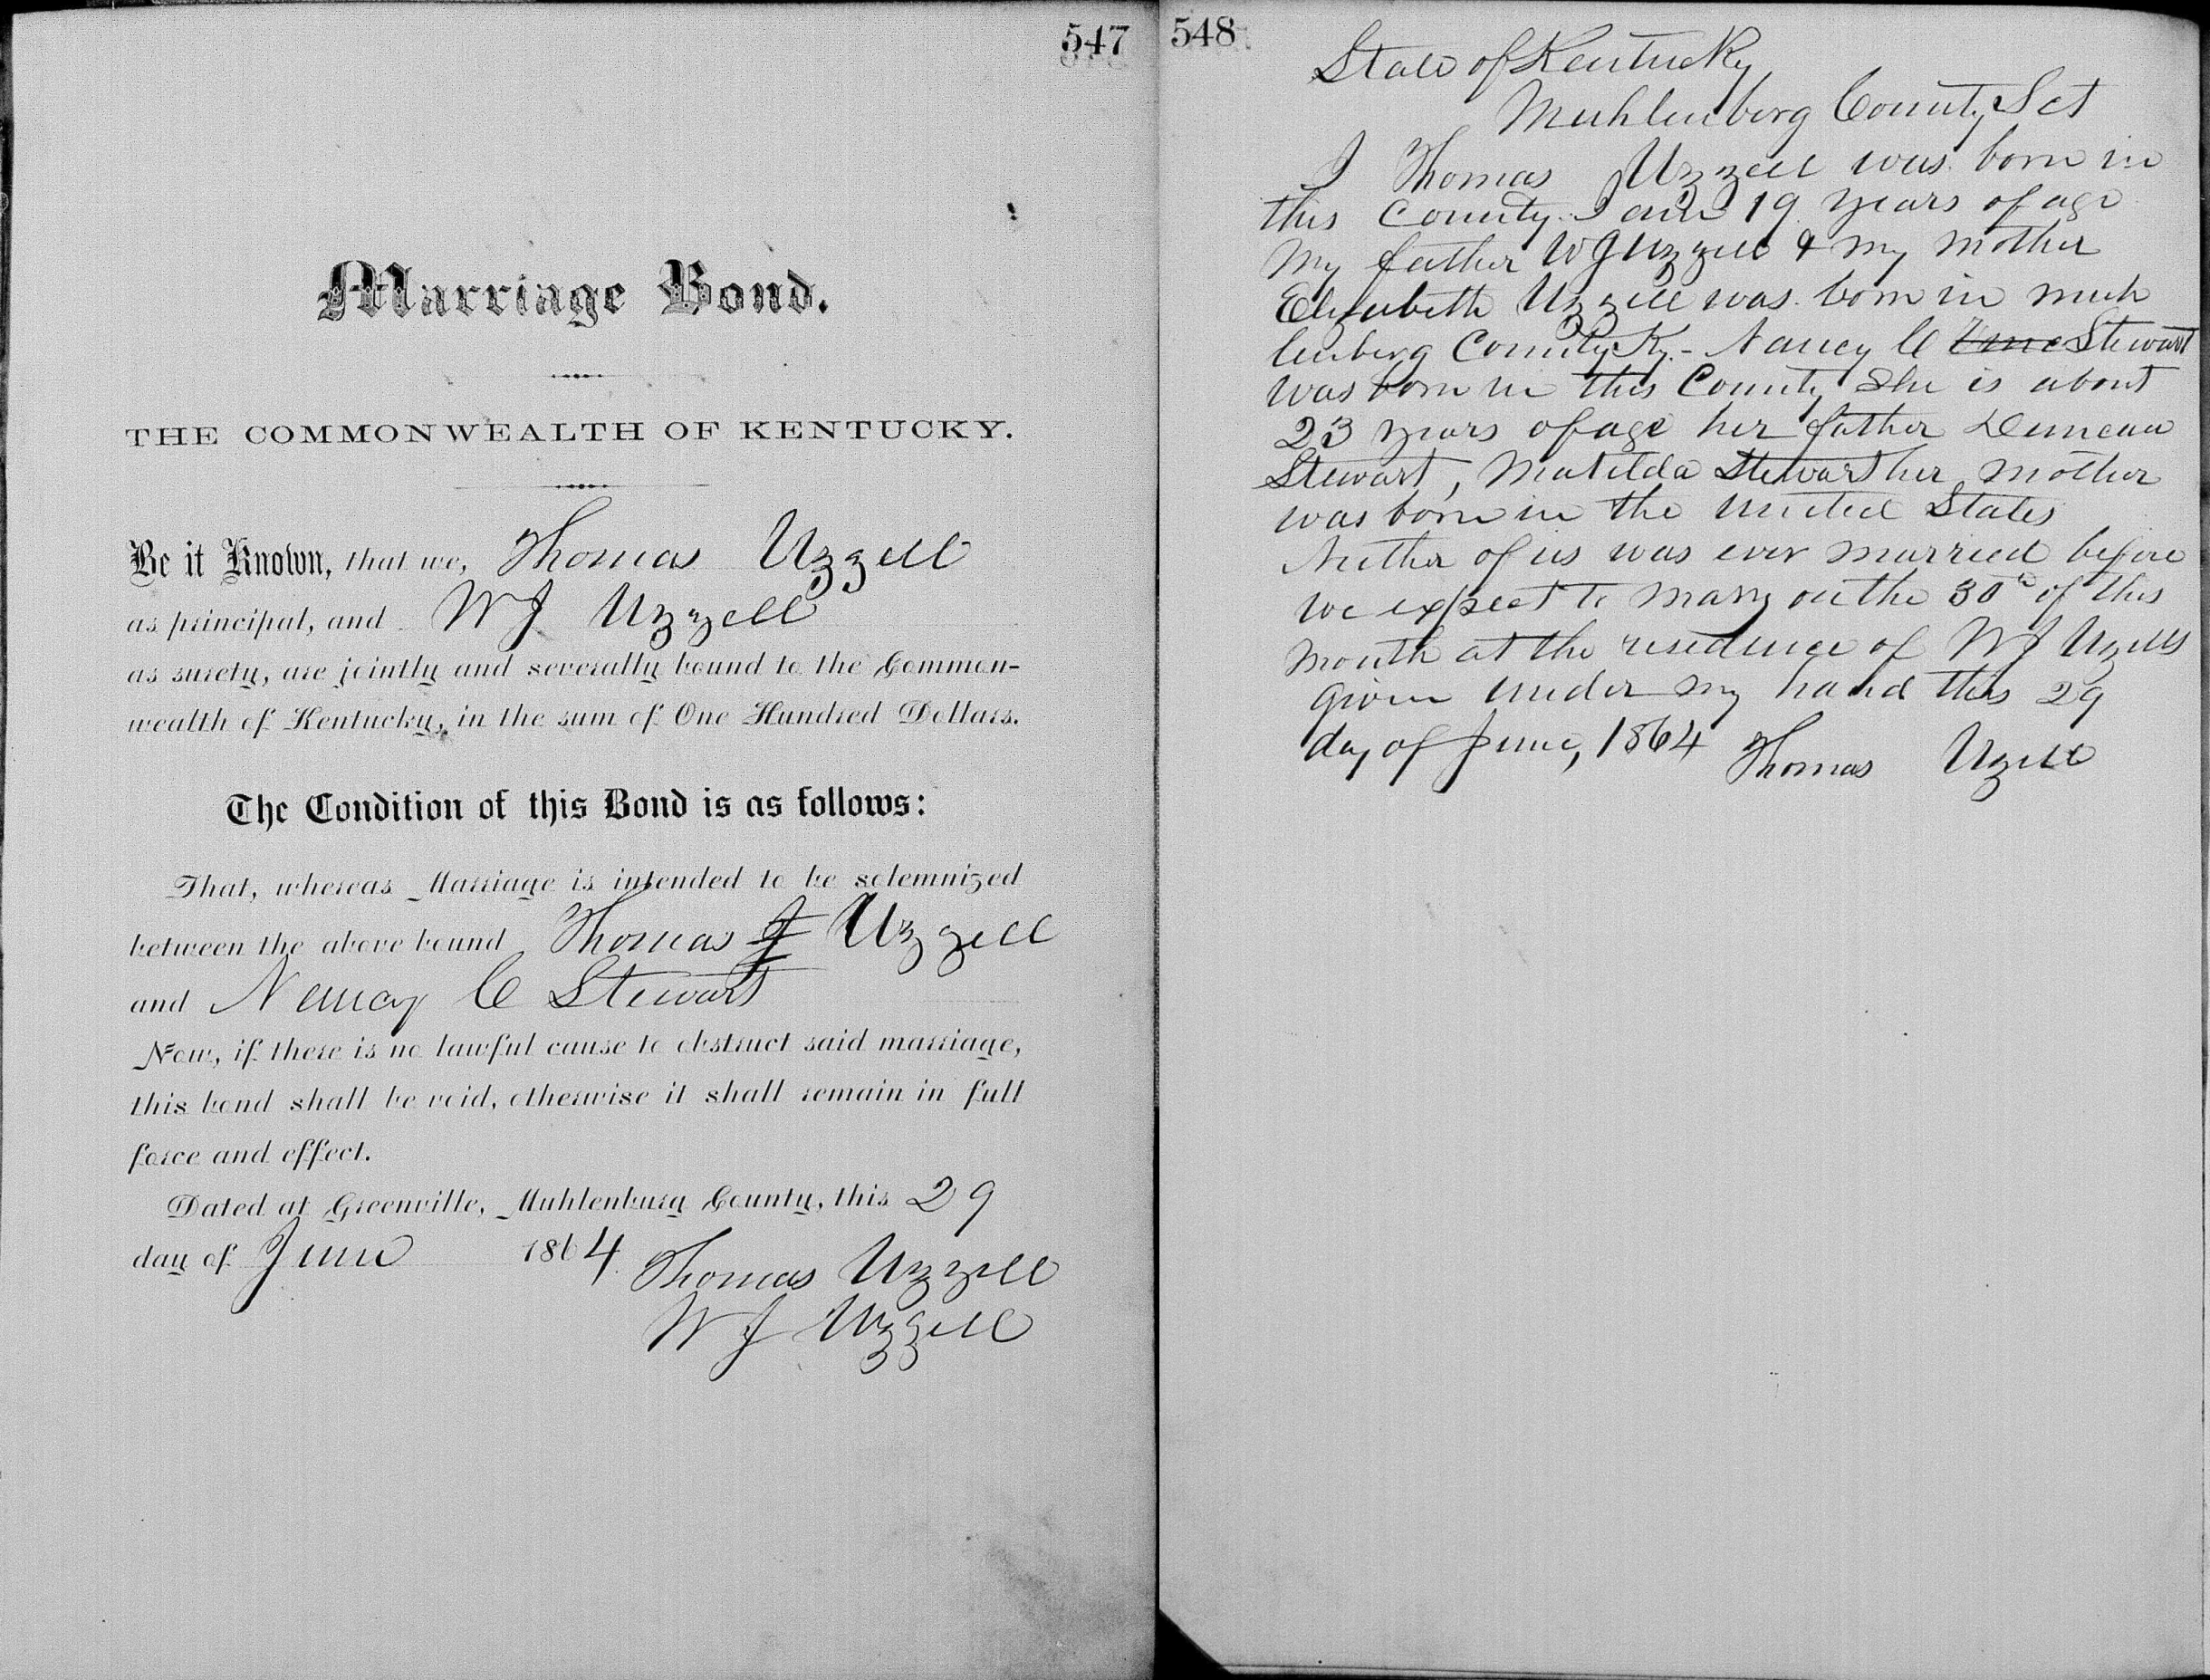 547
Marriage Bond.
THE COMMONWEALTH OF KENTUCKY.
Be it Known, that we, Thomas Uzzell
as principal, and W J Uzzell
as surety, are jointly and severally bound to the Common-
wealth of Kentucky, in the sum of One Hundred Dollars.
The Condition of this Bond is as follows:
That, whereas Marriage is intended to be solemnized
between the above bound Thomas J Uzzell
and Nancy C Stewart
Now, if there is no lawful cause to obstruct said marriage,
this bond shall be void, otherwise it shall remain in full
force and effect.
Dated at Greenville, Muhlenburg County, this 29
day of June 1864
Thomas Uzzell
W J Uzzell
548
State of Kentucky
Muhlenberg County Sct
I Thomas Uzzell was born in
this County. I am 19 years of age
My father W J Uzzell & my mother
Elizabeth Uzzell was born in Muh
lenberg County Ky.- Nancy C Stewart
was born in this County She is about
23 years of age her father Duncan
Stewart, Matilda Stewart her mother
was born in the United States
Neither of us was ever married before
we expect to marry on the 30th of this
month at the residence of W J Uzells
given under my hand this 29
day of June, 1864 Thomas Uzell